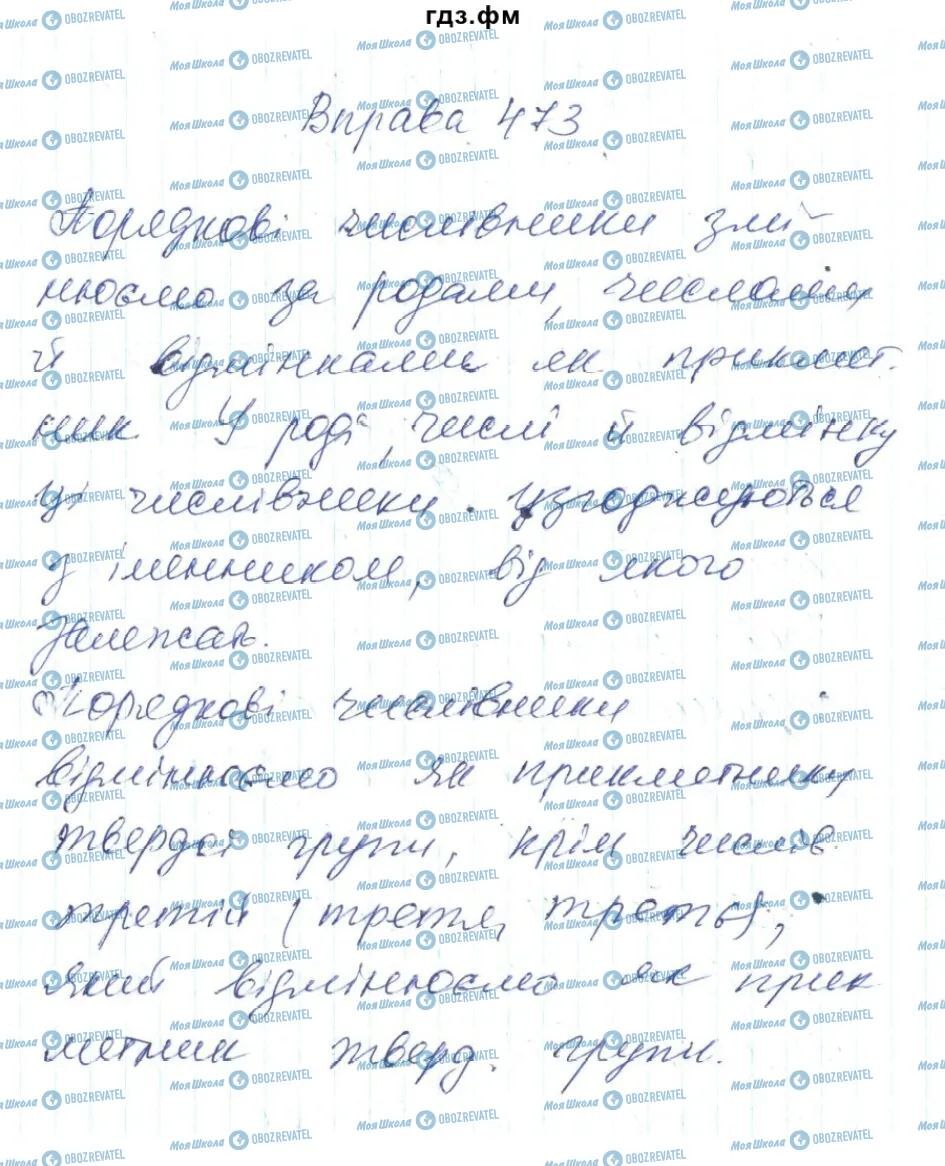 гдз.фм
Вправа 473
Порядкові числівники змі-
нюємо за родами, числами
й відмінками як прикмет-
ник. У роді, числі й відмінку
ці числівники узгоджуються
з іменником, від якого
залежать.
Порядкові числівники
відмінюємо як прикметники
твердої групи, крім числів.
третій (третя, третє),
який відмінюємо як прик
метник тверд. групи.